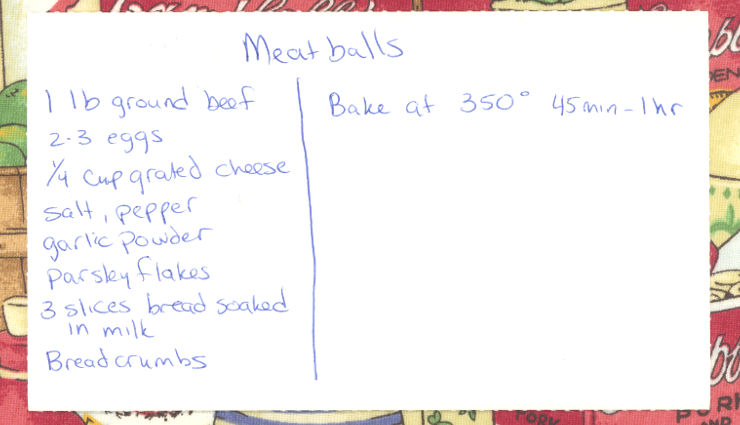 Meatballs
1 lb ground beef
2-3 eggs
1/4 cup grated cheese
salt, pepper
garlic powder
parsley flakes
3 slices bread soaked
in milk
Bread crumbs
Bake at 350° 45 min - 1 hr